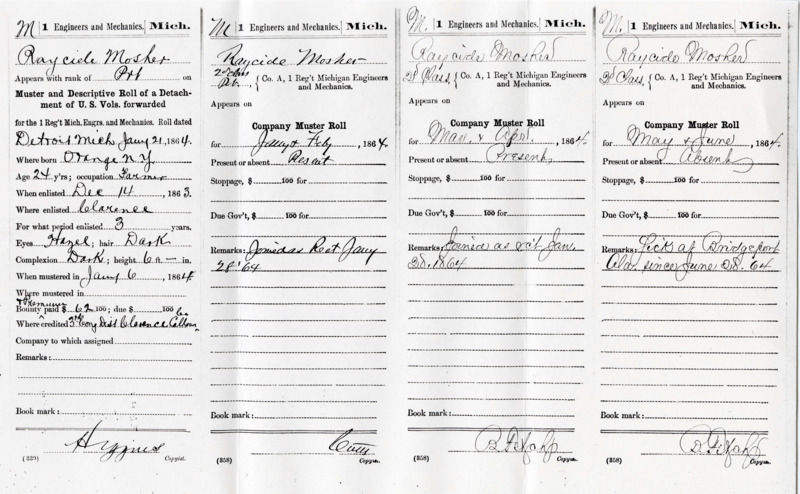 M 1 Engineers and Mechanics. Mich.
Raycide Mosher
Appears with rank of Prt on
Muster and Descriptive Roll of a Detach-
ment of U. S. Vols. forwarded
for the 1 Reg't Mich. Engrs. and Mechanics. Roll dated
Detroit Mich Jany 21, 1864.
Where born Orange N.Y.
Age 24 y'rs; occupation Farmer
When enlisted Dec 14, 1863.
Where enlisted Clarence
For what period enlisted 3 years.
Eyes Hazel; hair Dark
Complexion Dark; height 6 ft. — in.
When mustered in Jany 6, 1864
Where mustered in
& Premium
Bounty paid $ 62 100; due $ 100
Where credited 3rd Cong Dist Clarence Calhoun Co
Company to which assigned
Remarks:
Book mark:
Higgins
(339) Copyist.
M 1 Engineers and Mechanics. Mich.
Raycide Mosher
2d class
Prt., Co. A, 1 Reg't Michigan Engineers
and Mechanics.
Appears on
Company Muster Roll
for Jany & Feby, 1864.
Present or absent Present
Stoppage, $ 100 for
Due Gov't, $ 100 for
Remarks: Joined as Rect Jany
28' 64
Book mark:
(358) Copyist.
M. 1 Engineers and Mechanics. Mich.
Raycide Mosher
2d Class, Co. A, 1 Reg't Michigan Engineers
and Mechanics.
Appears on
Company Muster Roll
for Mar. & Apl., 1864.
Present or absent Present
Stoppage, $ 100 for
Due Gov't, $ 100 for
Remarks: Joined as rect Jan.
28. 1864
Book mark:
(358) Copyist.
M. 1 Engineers and Mechanics. Mich.
Raycide Mosher
2d Class, Co. A, 1 Reg't Michigan Engineers
and Mechanics.
Appears on
Company Muster Roll
for May & June, 1864.
Present or absent Absent
Stoppage, $ 100 for
Due Gov't, $ 100 for
Remarks: Sick at Bridgeport
Ala. since June 28. 64
Book mark:
(358) Copyist.